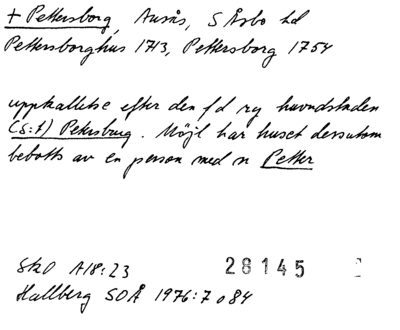 + Pettersborg, Ausås, S Åsbo hd
Pettersborghus 1713, Pettersborg 1754
uppkallelse efter den f d ry huvudstaden
(S:t) Petersburg. Möjl har huset dessutom
bebotts av en person med n Petter
SkO A18:23
28145
Hallberg SOÅ 1976:7 o 84